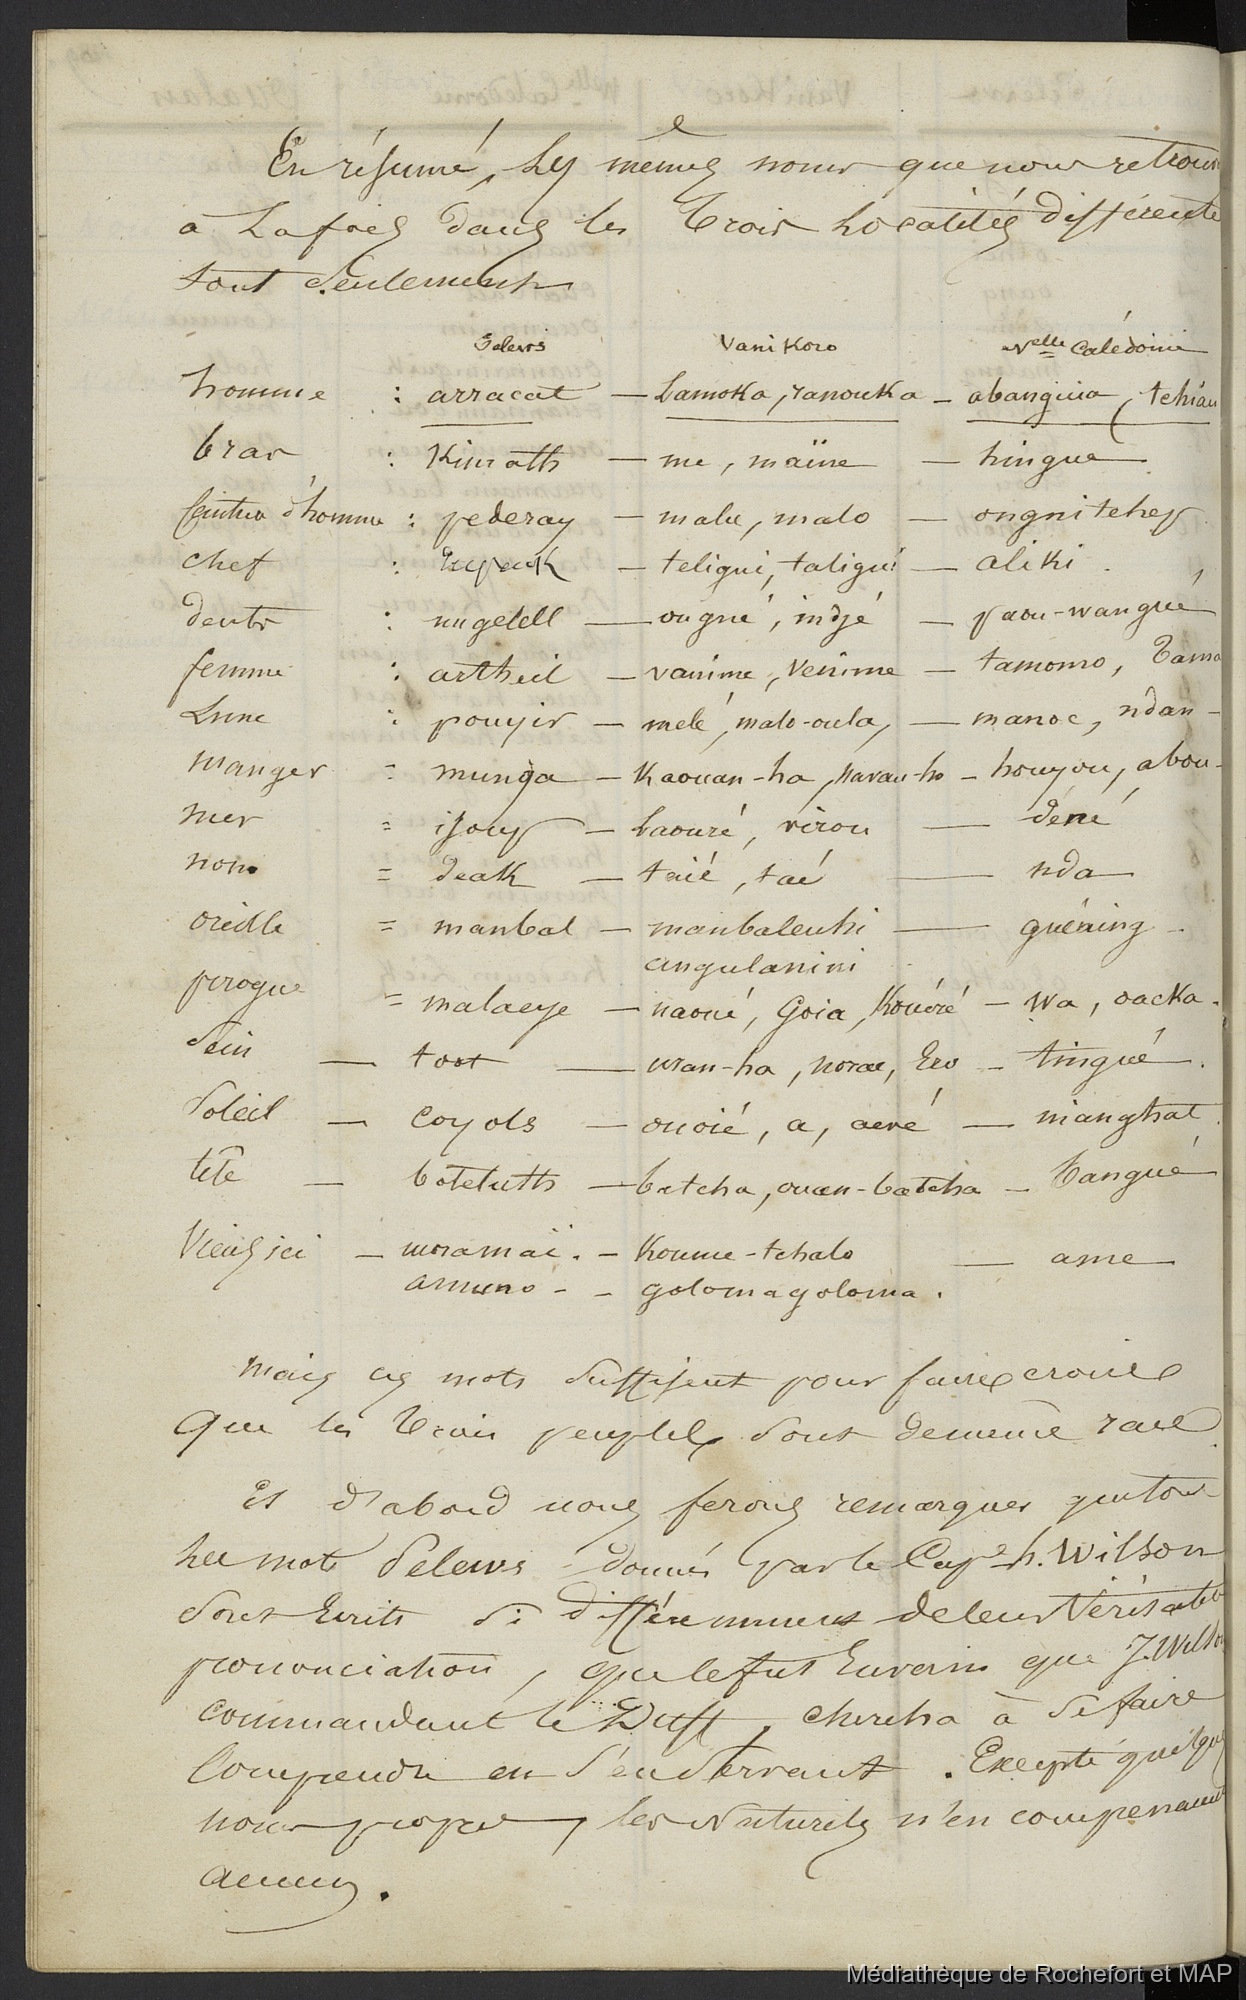 En résumé, les mêmes noms que nous retrouv
à la fois dans les trois localités différente
sont seulement
Pelews Vanikoro Nelle Calédonie
homme : arracat — Lamoka, ranouka — abanguia, tchiau
bras : Kimath — me, maïne — hingue
ceinture d'homme : pederay — malu, malo — ongnitchep
chef : Rupeuk — teligui, taligui — aliki.
dents : ungelell — ougné, indjé — paou-wangué
femme : artheil — vanime, venime — tamomo, Tama
Lune : pouyir — melé, malo-oula, — manoc, ndan-
manger = munga — Kaouan-ha, Kavan-ho — houyou, abou-
mer = ijouy — baouré, virou — déné
non = deak — taié, taé — nda
oreille = manbal — manbalenhi — guéning —
angulanini
pirogue = malaeye — naoué, Goia, Kouéré — wa, oacka.
Sein — toot — uran-ha, norae, Ero — tingué.
Soleil — coyols — ouoié, a, aeré — nianghat.
tête — boteluth — batcha, ouan-batcha — bangué
Viens ici — moramaï. — Koume-tchalo — ame
amuno - - golomagoloma.
Mais ces mots suffisent pour faire croire
que les trois peuples sont de meme race.
Et d'abord nous ferons remarquer que tous
les mots Pelews donnés par le Cape h. Wilson
sont Ecrits si différemment de leur véritable
prononciation, que le fut Envain que J. Wilso
commandant le Duff, chercha à se faire
Comprendre en s'en Servant. Excepté quelque
noms propres, les Naturels n'en comprenaien
aucun.
Médiathèque de Rochefort et MAP